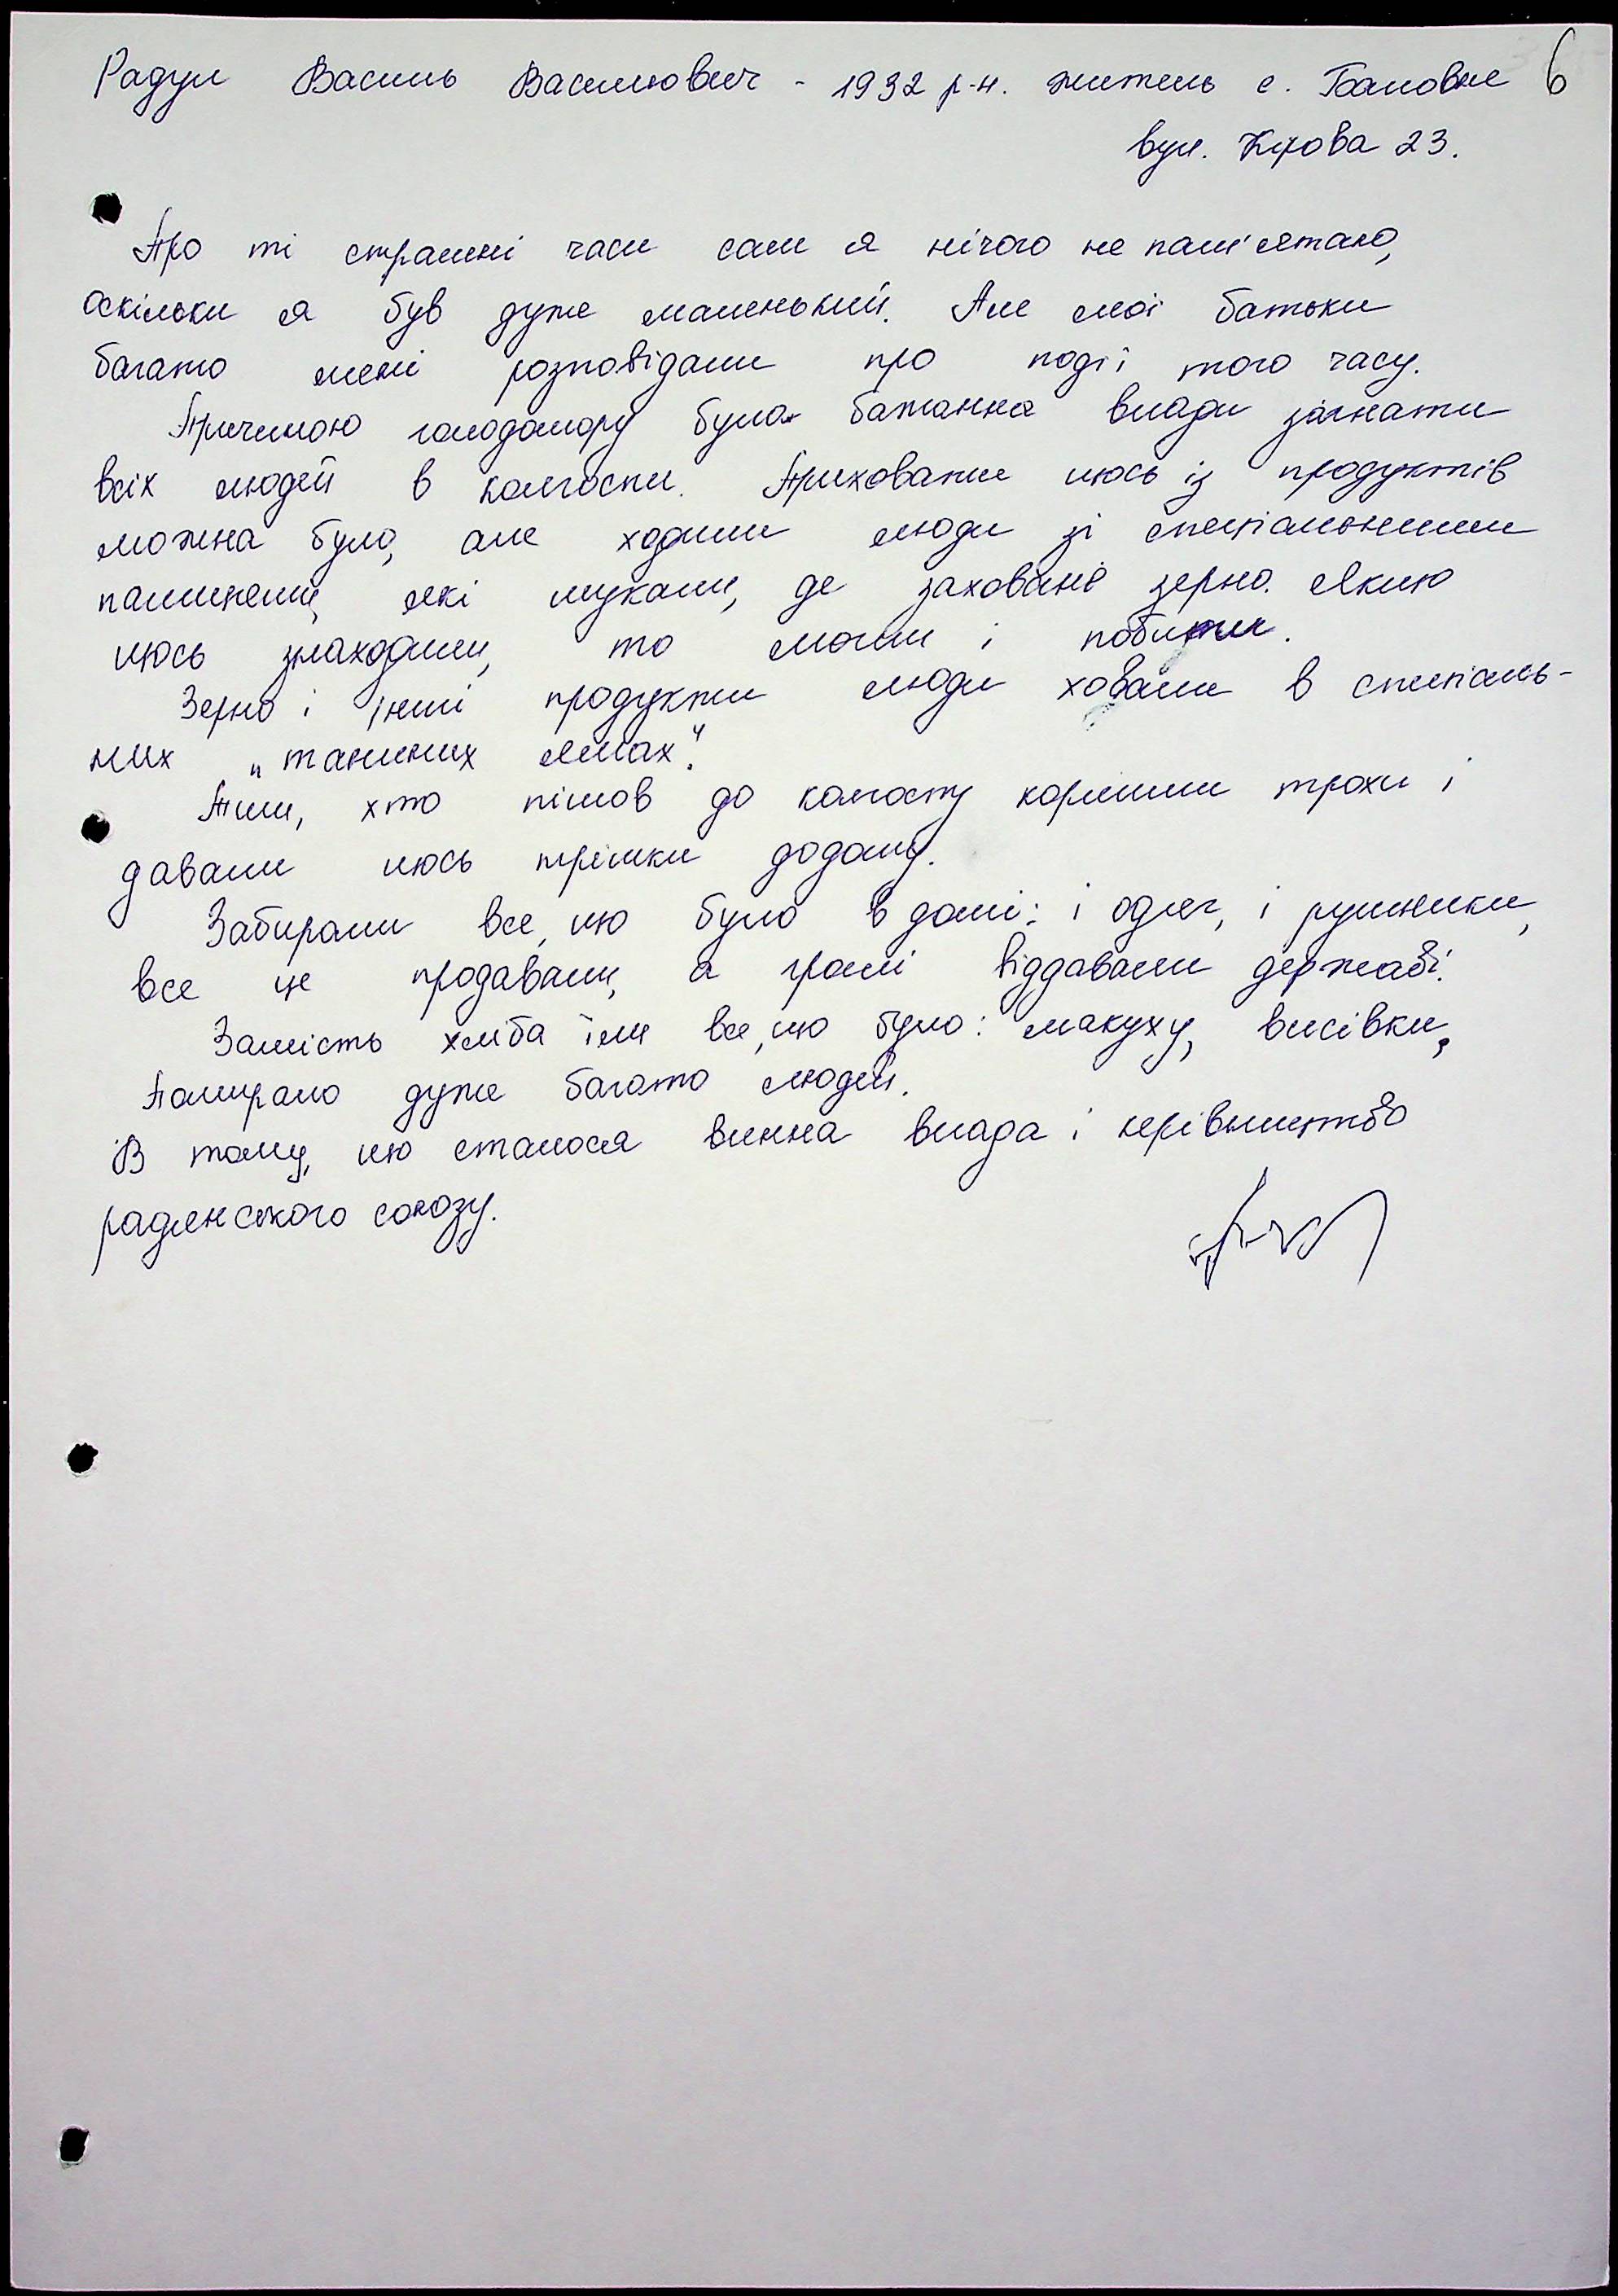 Радул Василь Васильович - 1932 р-н. житель с. Бановка 6
вул. Кірова 23.
Про ті страшні часи сам я нічого не пам'ятаю,
оскільки я був дуже маленький. Але мої батьки
багато мені розповідали про події того часу.
Причиною голодомору була бажання влади зігнати
всіх людей в колгоспи. Приховати щось із продуктів
можна було, але ходили люди зі спеціальними
палицями, які шукали, де заховане зерно. Якщо
щось знаходили, то могли і побити.
Зерно і інші продукти люди ховали в спеціаль-
них „таємних ямах".
Тим, хто пішов до колгоспу кормили трохи і
давали щось трішки додому.
Забирали все, що було в домі: і одяг, і рушники,
все це продавали, а гроші віддавали державі.
Замість хліба їли все, що було: макуху, висівки,
Помирало дуже багато людей.
В тому, що сталося винна влада і керівництво
радянського союзу.